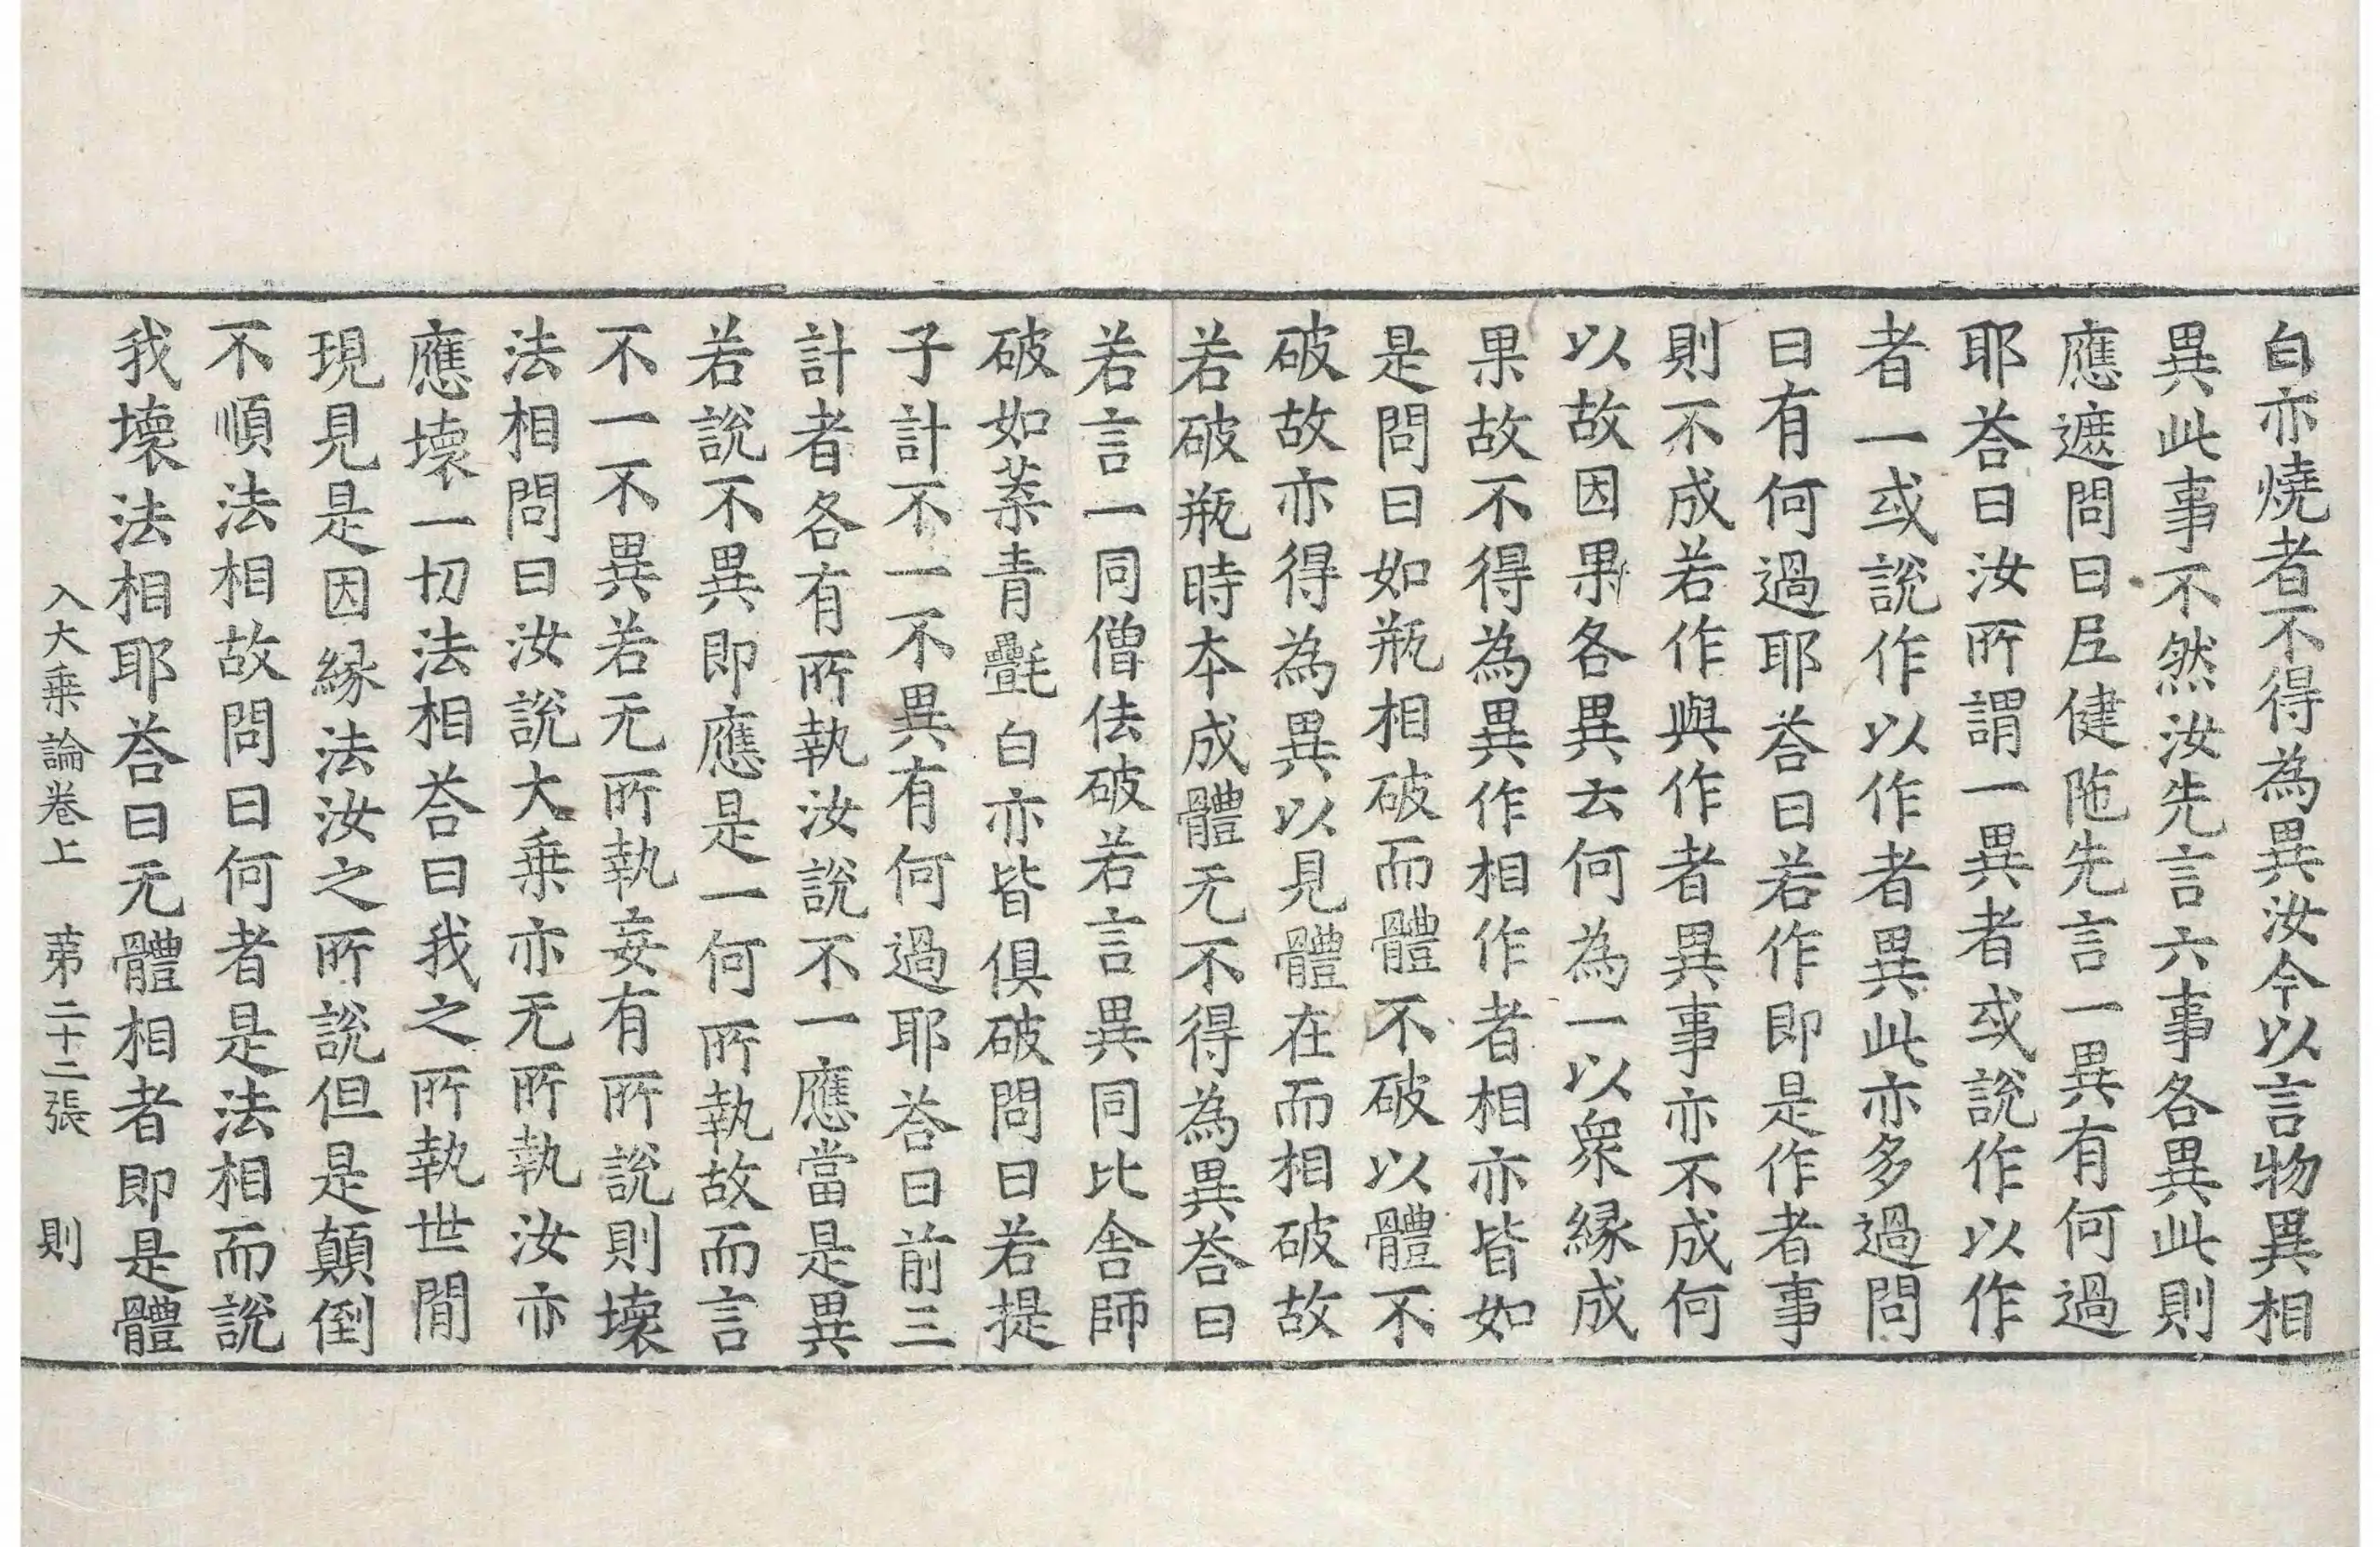 白亦燒者不得為異汝今以言物異相
異此事不然汝先言六事各異此則
應遮問曰𡰱健陁先言一異有何過
耶荅曰汝所謂一異者或說作以作
者一或說作以作者異此亦多過問
曰有何過耶荅曰若作即是作者事
則不成若作與作者異事亦不成何
以故因果各異去何為一以衆緣成
果故不得為異作相作者相亦皆如
是問曰如瓶相破而體不破以體不
破故亦得為異以見體在而相破故
若破瓶時本成體无不得為異荅曰
若言一同僧佉破若言異同比舍師
破如蒸青㲲白亦皆俱破問曰若提
子計不一不異有何過耶荅曰前三
計者各有所執汝說不一應當是異
若說不異即應是一何所執故而言
不一不異若无所執妄有所說則壞
法相問曰汝說大乗亦无所執汝亦
應壞一切法相荅曰我之所執世間
現見是因緣法汝之所說但是顛倒
不順法相故問曰何者是法相而說
我壞法相耶荅曰无體相者即是體
入大乗論卷上　苐二十二張　則